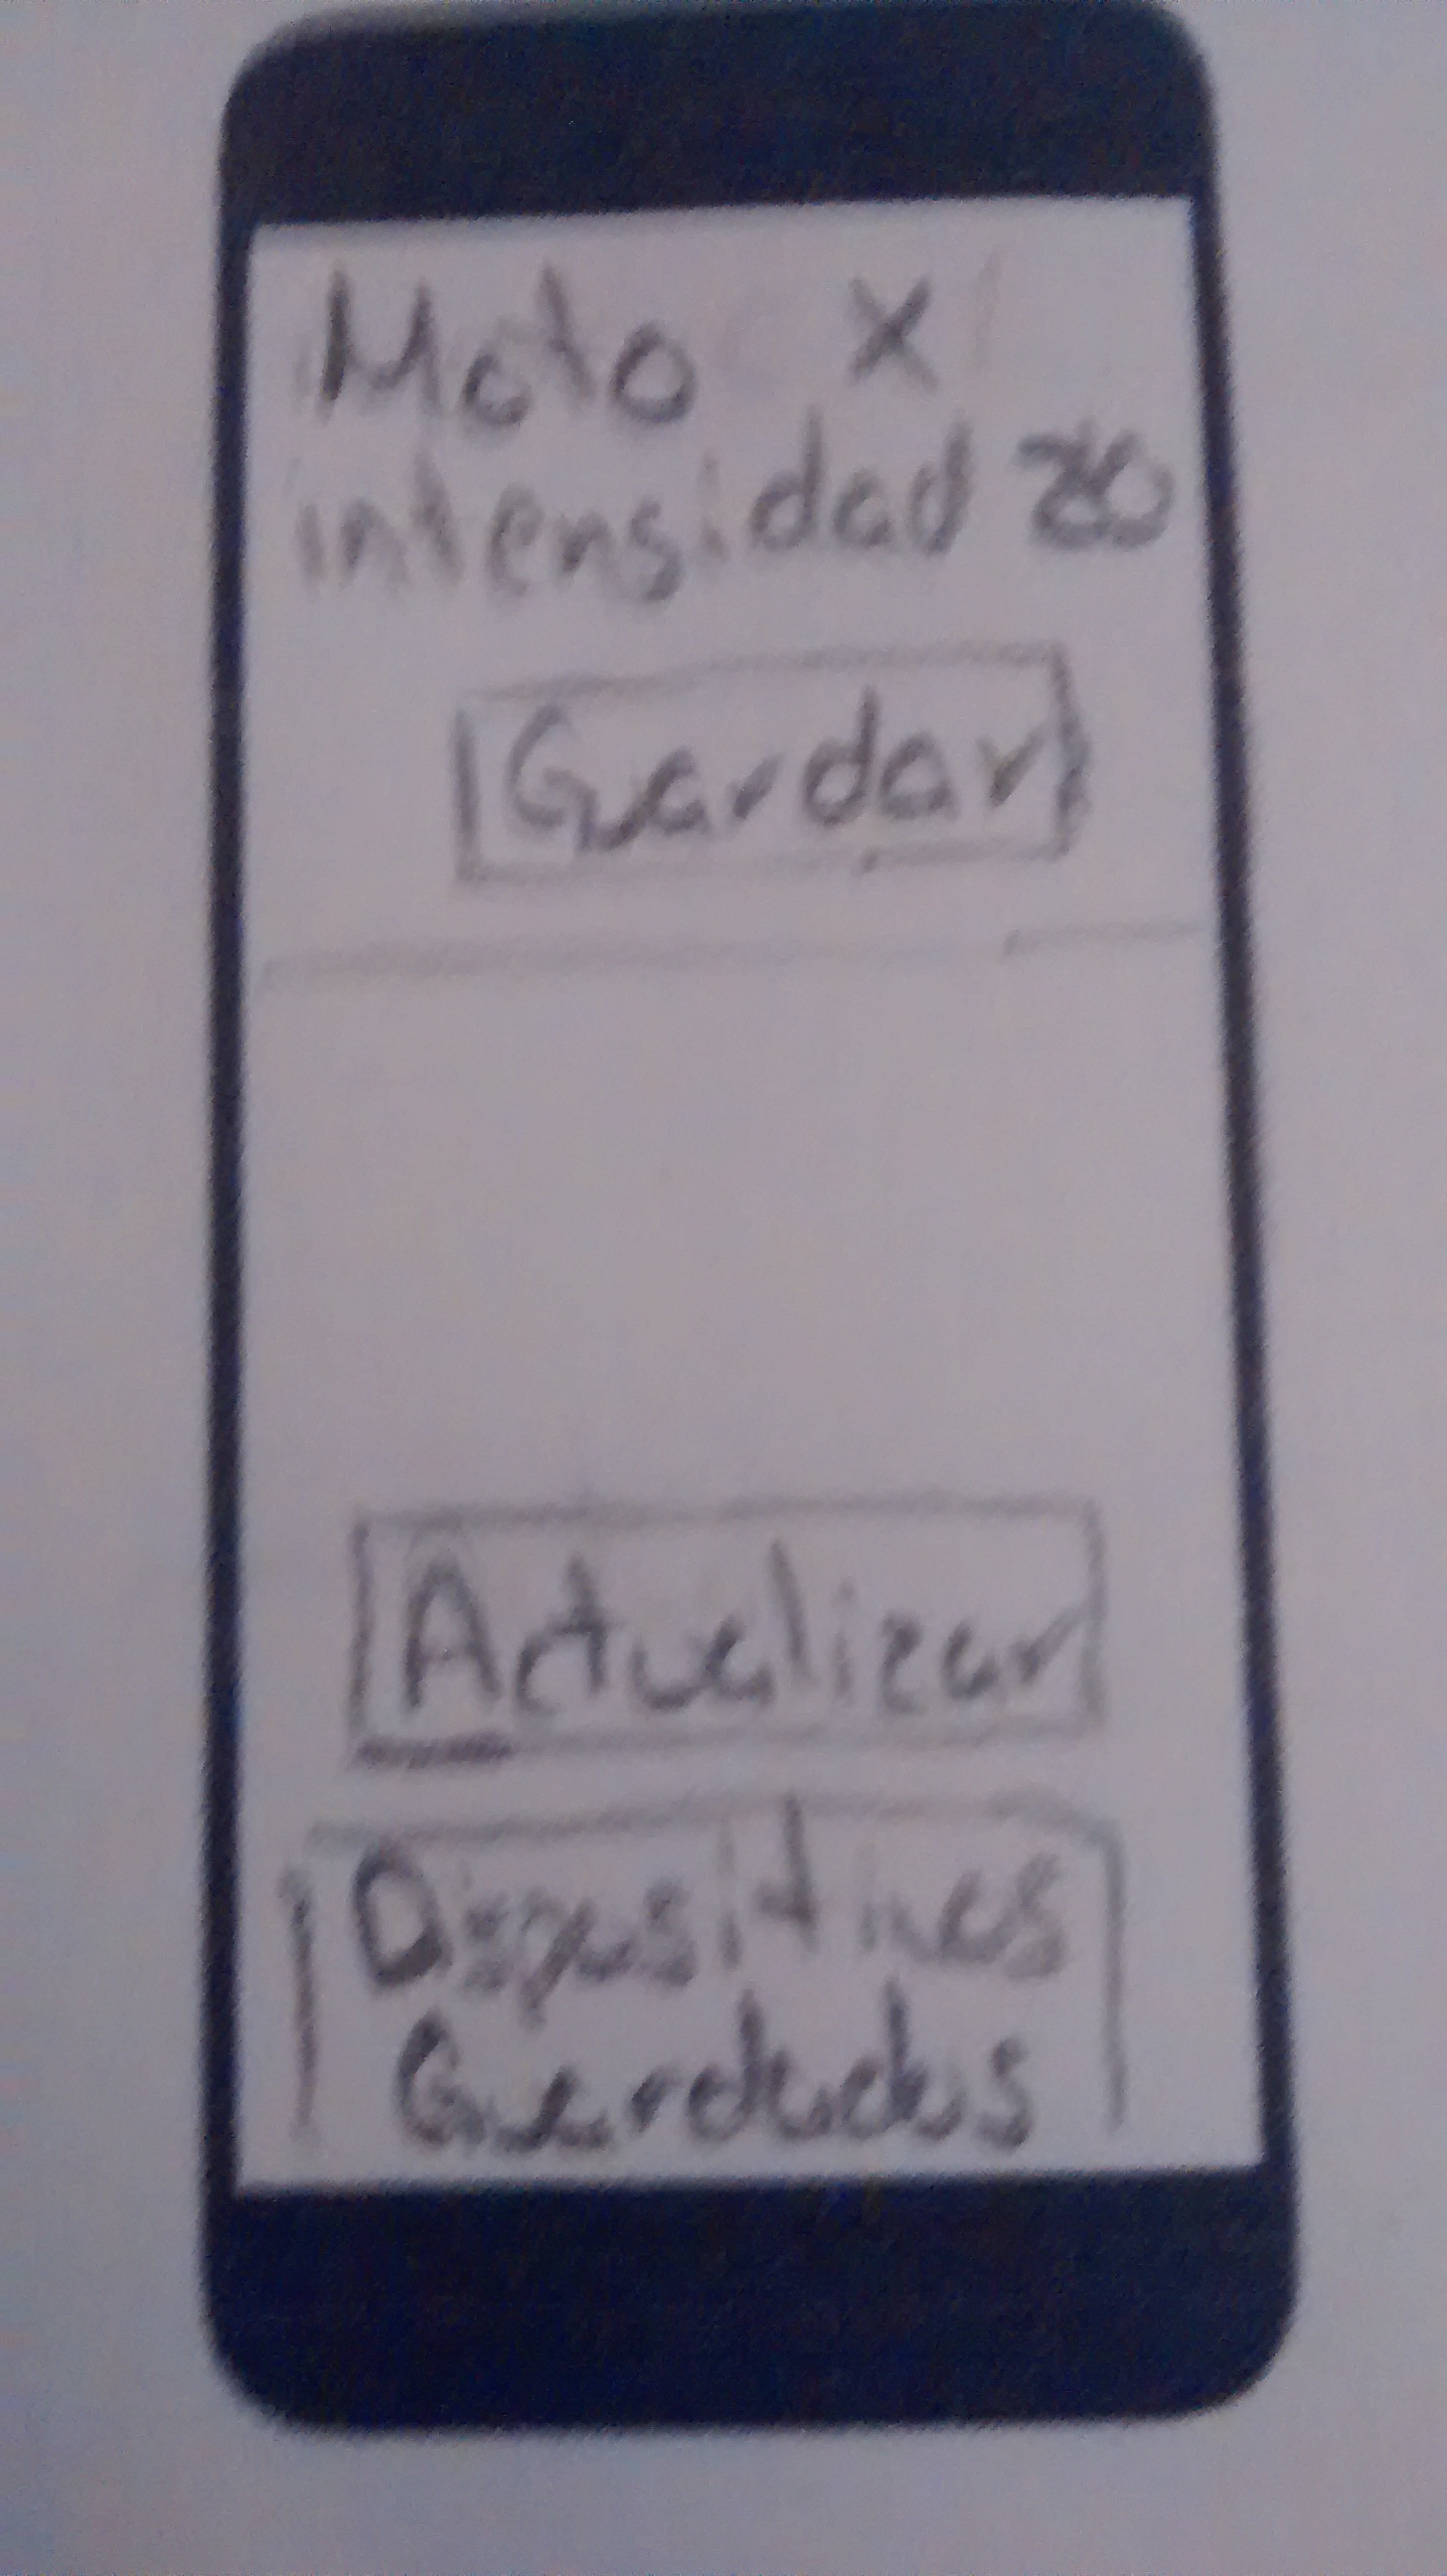 Moto X
intensidad
Guardar
Actualizar
Dispositivos
Guardados